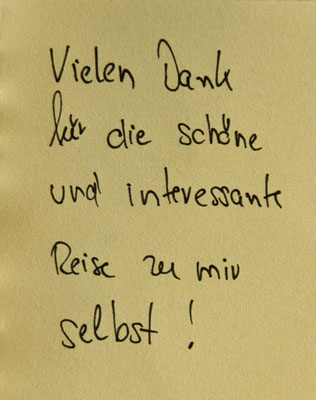 Vielen Dank
für die schöne
und interessante
Reise zu mir
selbst !